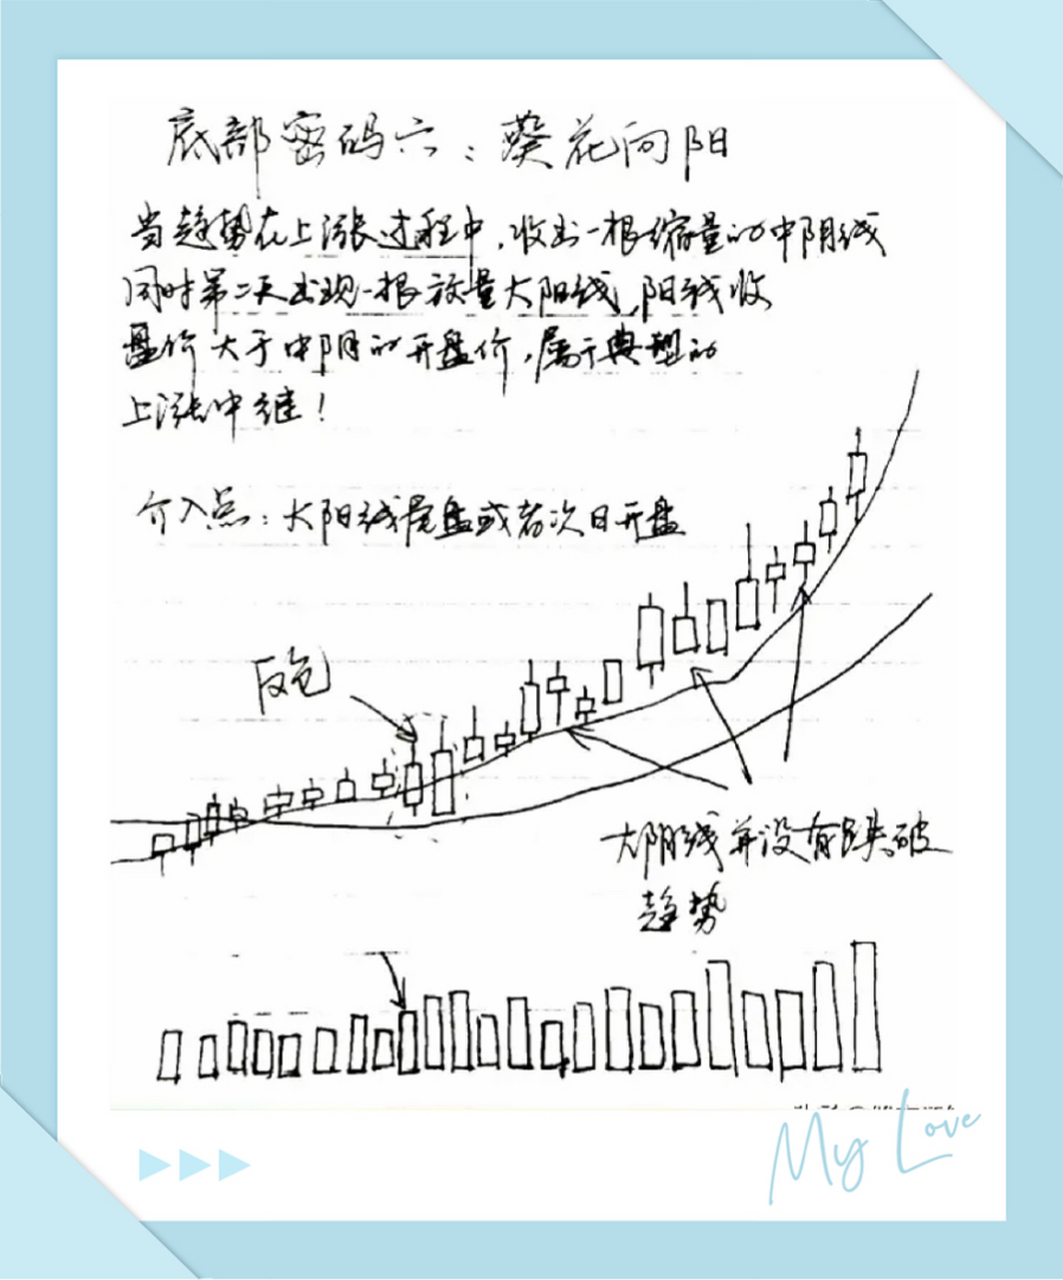 底部密码六：葵花向阳
当趋势在上涨过程中，收出一根缩量的中阴线
同时第二天出现一根放量大阳线，阳线收
盘价大于中阴的开盘价，属于典型的
上涨中继！
介入点：大阳线尾盘或者次日开盘
反包
大阴线并没有跌破
趋势
My Love